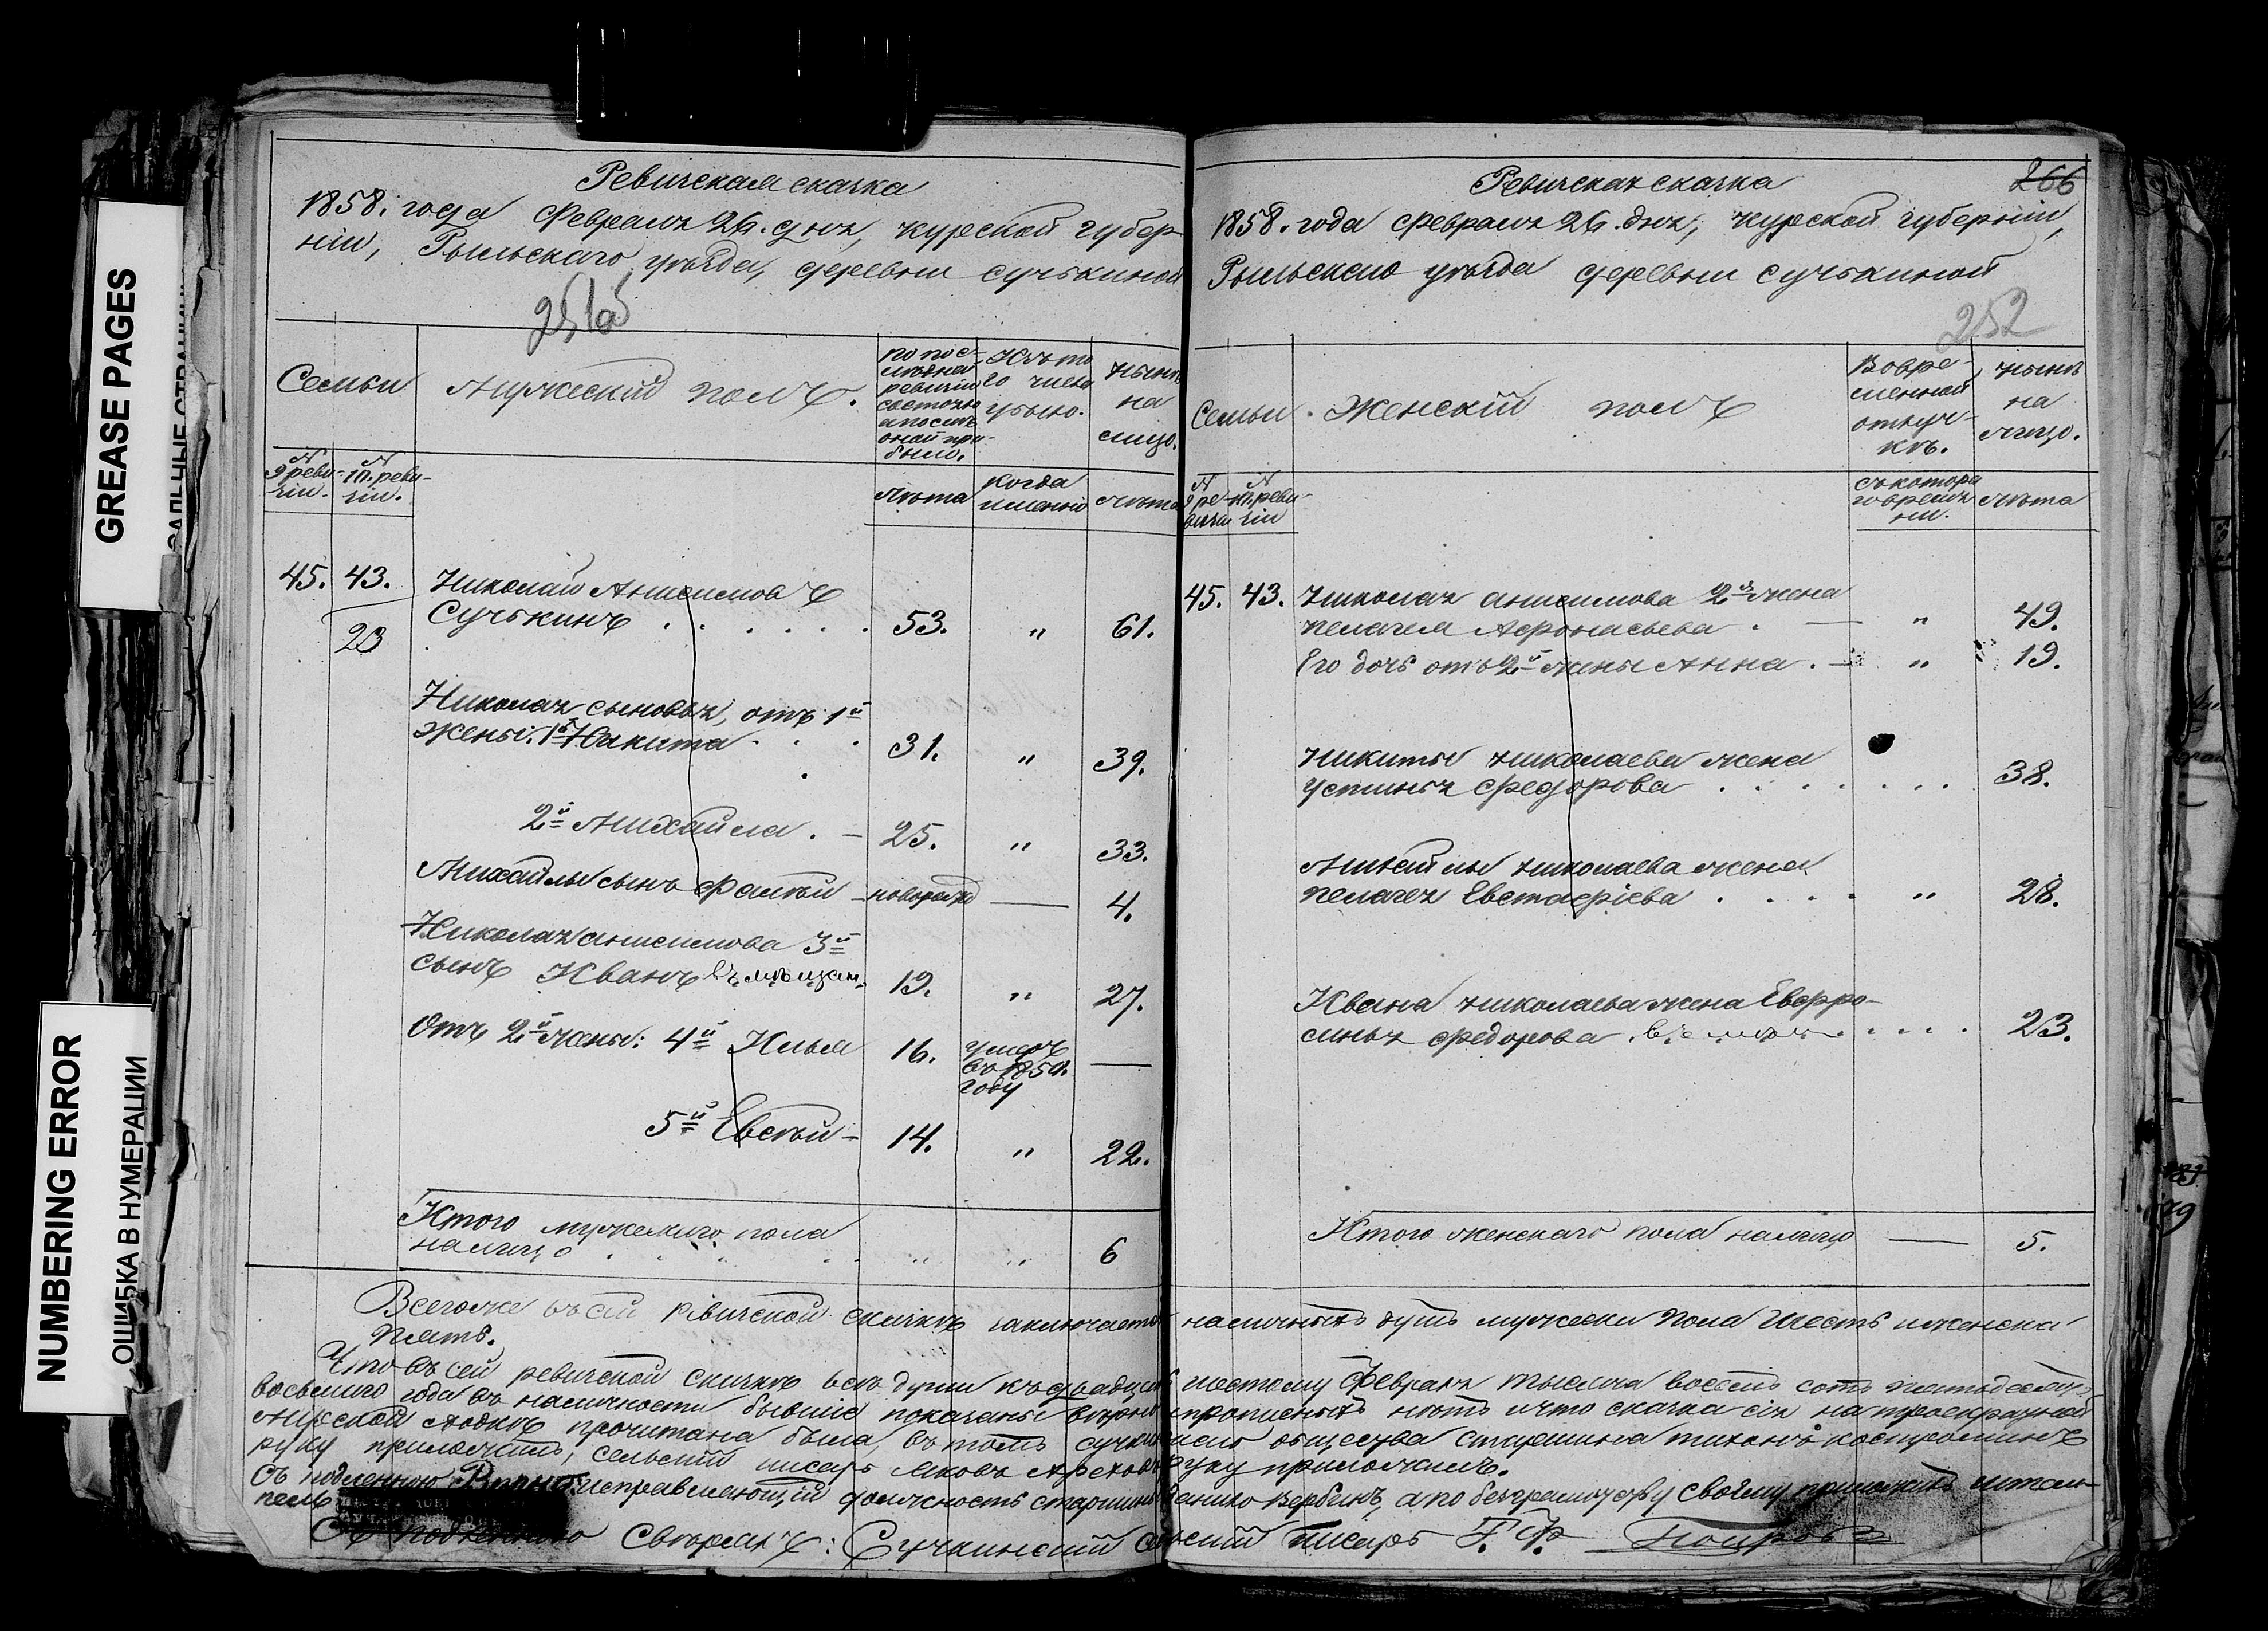 GREASE PAGES
NUMBERING ERROR
ОШИБКА В НУМЕРАЦИИ
Ревизская сказка
1858. года Февраля 26. дня, Курской губер
нiи, Рыльскаго уѣзда, деревни Сучькиной
251об
Семьи
Мужескiй полъ.
По пос-
лѣдней
ревизiи
состояло
и послѣ
оной при-
было.
Изъ то
го числа
убыло.
Нынѣ
на
лицо.
№
9 реви-
зiи.
№
10. реви-
зiи.
Лѣта
Когда
именно
Лѣта
45. 43. Николай Анисимовъ
Сучькинъ . . . . . . 53. " 61.
23
Николая сыновья, отъ 1й
жены: 1й Никита . . . 31. " 39.
2й Михайла . – 25. " 33.
Михайлы сынъ Фатѣй – новорожд — 4.
Николая Анисимова 3й
сынъ Иванъ 19. " 27.
Отъ 2й жены: 4й Илья 16. умеръ
въ 185
году —
5й Евсѣй – 14. " 22.
Итого мужескаго пола
налицо . . . . " " 6
Ревизская сказка
266
1858. года Февраля 26. дня, Курской губернiи,
Рыльскаго уѣзда деревни Сучькиной
252
Семьи. Женскiй полъ
Во вре-
менной
отлуч-
кѣ.
Нынѣ
на
лицо.
№
9 ре-
визiи
№
10. реви-
зiи
Съ котора
го време
ни.
Лѣта
45. 43. Николая Анисимова 2я жена
Пелагея Афонасьева . — " 49.
Его дочь отъ 2й жены Анна . — " 19.
Никиты Николаева жена
Устинья Федорова . . . . . . . 38.
Михайлы Николаева жена
Пелагея Евстафiева . . . . " 28.
Ивана Николаева жена Евфро-
синья Федорова . . . . 23.
Итого женскаго пола налицо — 5.
Всего же въ сей ревизской сказкѣ заключается наличныхъ душъ мужеска пола шесть и женска
пять.
Что въ сей ревизской сказкѣ всѣ души къ двадцать шестому Февраля тысяча восемь сотъ пятьдесятъ
восьмого года въ наличности бывшие показаны и прописныхъ нѣтъ и что сказка сiя на троекратной
мирской сходкѣ прочитана была, въ томъ общества старшина Тихонъ Костромин
руку приложилъ, сельскiй писарь Яковъ руку приложилъ.
Съ подленною исправляющiй должность старшины Вербинъ, а по безграмотству своему приложилъ
печать
Съ подленною Свѣрялъ: Сучкинскiй сельскiй Писарь